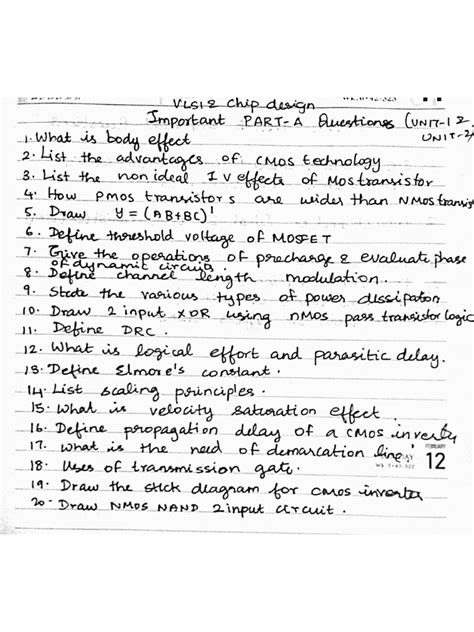 VLSI & Chip design
Important PART-A Questions (UNIT-1 &
UNIT-2)
1. What is body effect
2. List the advantages of CMOS technology
3. List the non ideal I V effects of MOS transistor
4. How PMOS transistors are wider than NMOS transis
5. Draw Y = (AB+BC)'
6. Define threshold voltage of MOSFET
7. Give the operations of precharge & evaluate phase
of dynamic circuits.
8. Define channel length modulation.
9. State the various types of power dissipation
10. Draw 2 input XOR using NMOS pass transistor logic
11. Define DRC.
12. What is logical effort and parasitic delay.
13. Define Elmore's constant.
14. List scaling principles.
15. What is velocity saturation effect.
16. Define propagation delay of a CMOS inverter
17. What is the need of demarcation line
FEBRUARY
12
18. Uses of transmission gate.
19. Draw the stick diagram for CMOS inverter
20. Draw NMOS NAND 2input circuit.